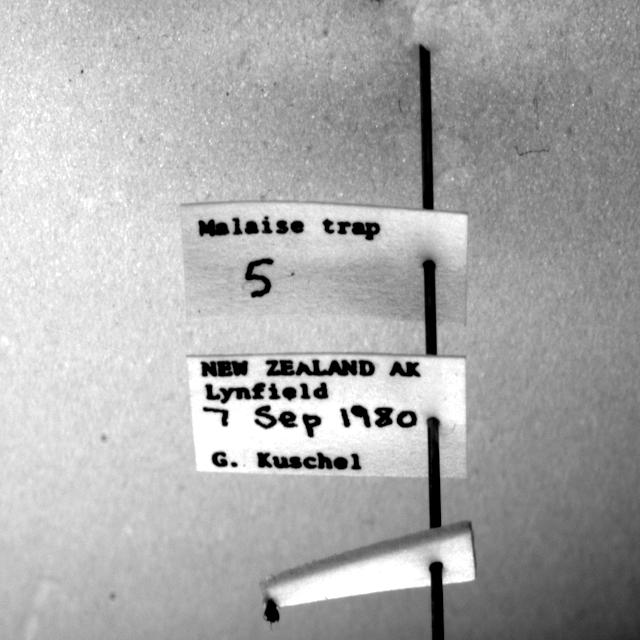 Malaise trap
5
NEW ZEALAND AK
Lynfield
7 Sep 1980
G. Kuschel